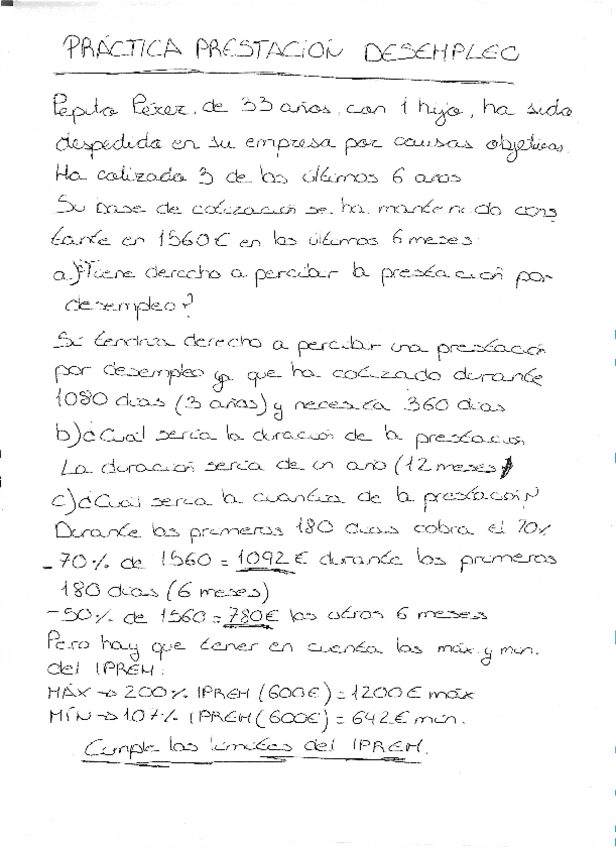 PRÁCTICA PRESTACIÓN DESEMPLEO
Pepito Pérez, de 33 años, con 1 hijo, ha sido
despedido en su empresa por causas objetivas.
Ha cotizado 3 de los últimos 6 años
Su base de cotización se ha mantenido cons
tante en 1560€ en los últimos 6 meses:
a.) ¿Tiene derecho a percibir la prestación por
desempleo?
Sí tendría derecho a percibir una prestación
por desempleo ya que ha cotizado durante
1080 días (3 años) y necesita 360 días
b) ¿Cuál sería la duración de la prestación
La duración sería de un año (12 meses)
c) ¿Cuál sería la cuantía de la prestación
Durante los primeros 180 días cobra el 70%
- 70% de 1560 = 1092€ durante los primeros
180 días (6 meses)
- 50% de 1560 = 780€ los otros 6 meses
Pero hay que tener en cuenta los máx. y min.
del IPREM:
MÁX → 200% IPREM (600€) = 1200€ máx
MÍN → 107% IPREM (600€) = 642€ min.
Cumple los límites del IPREM.